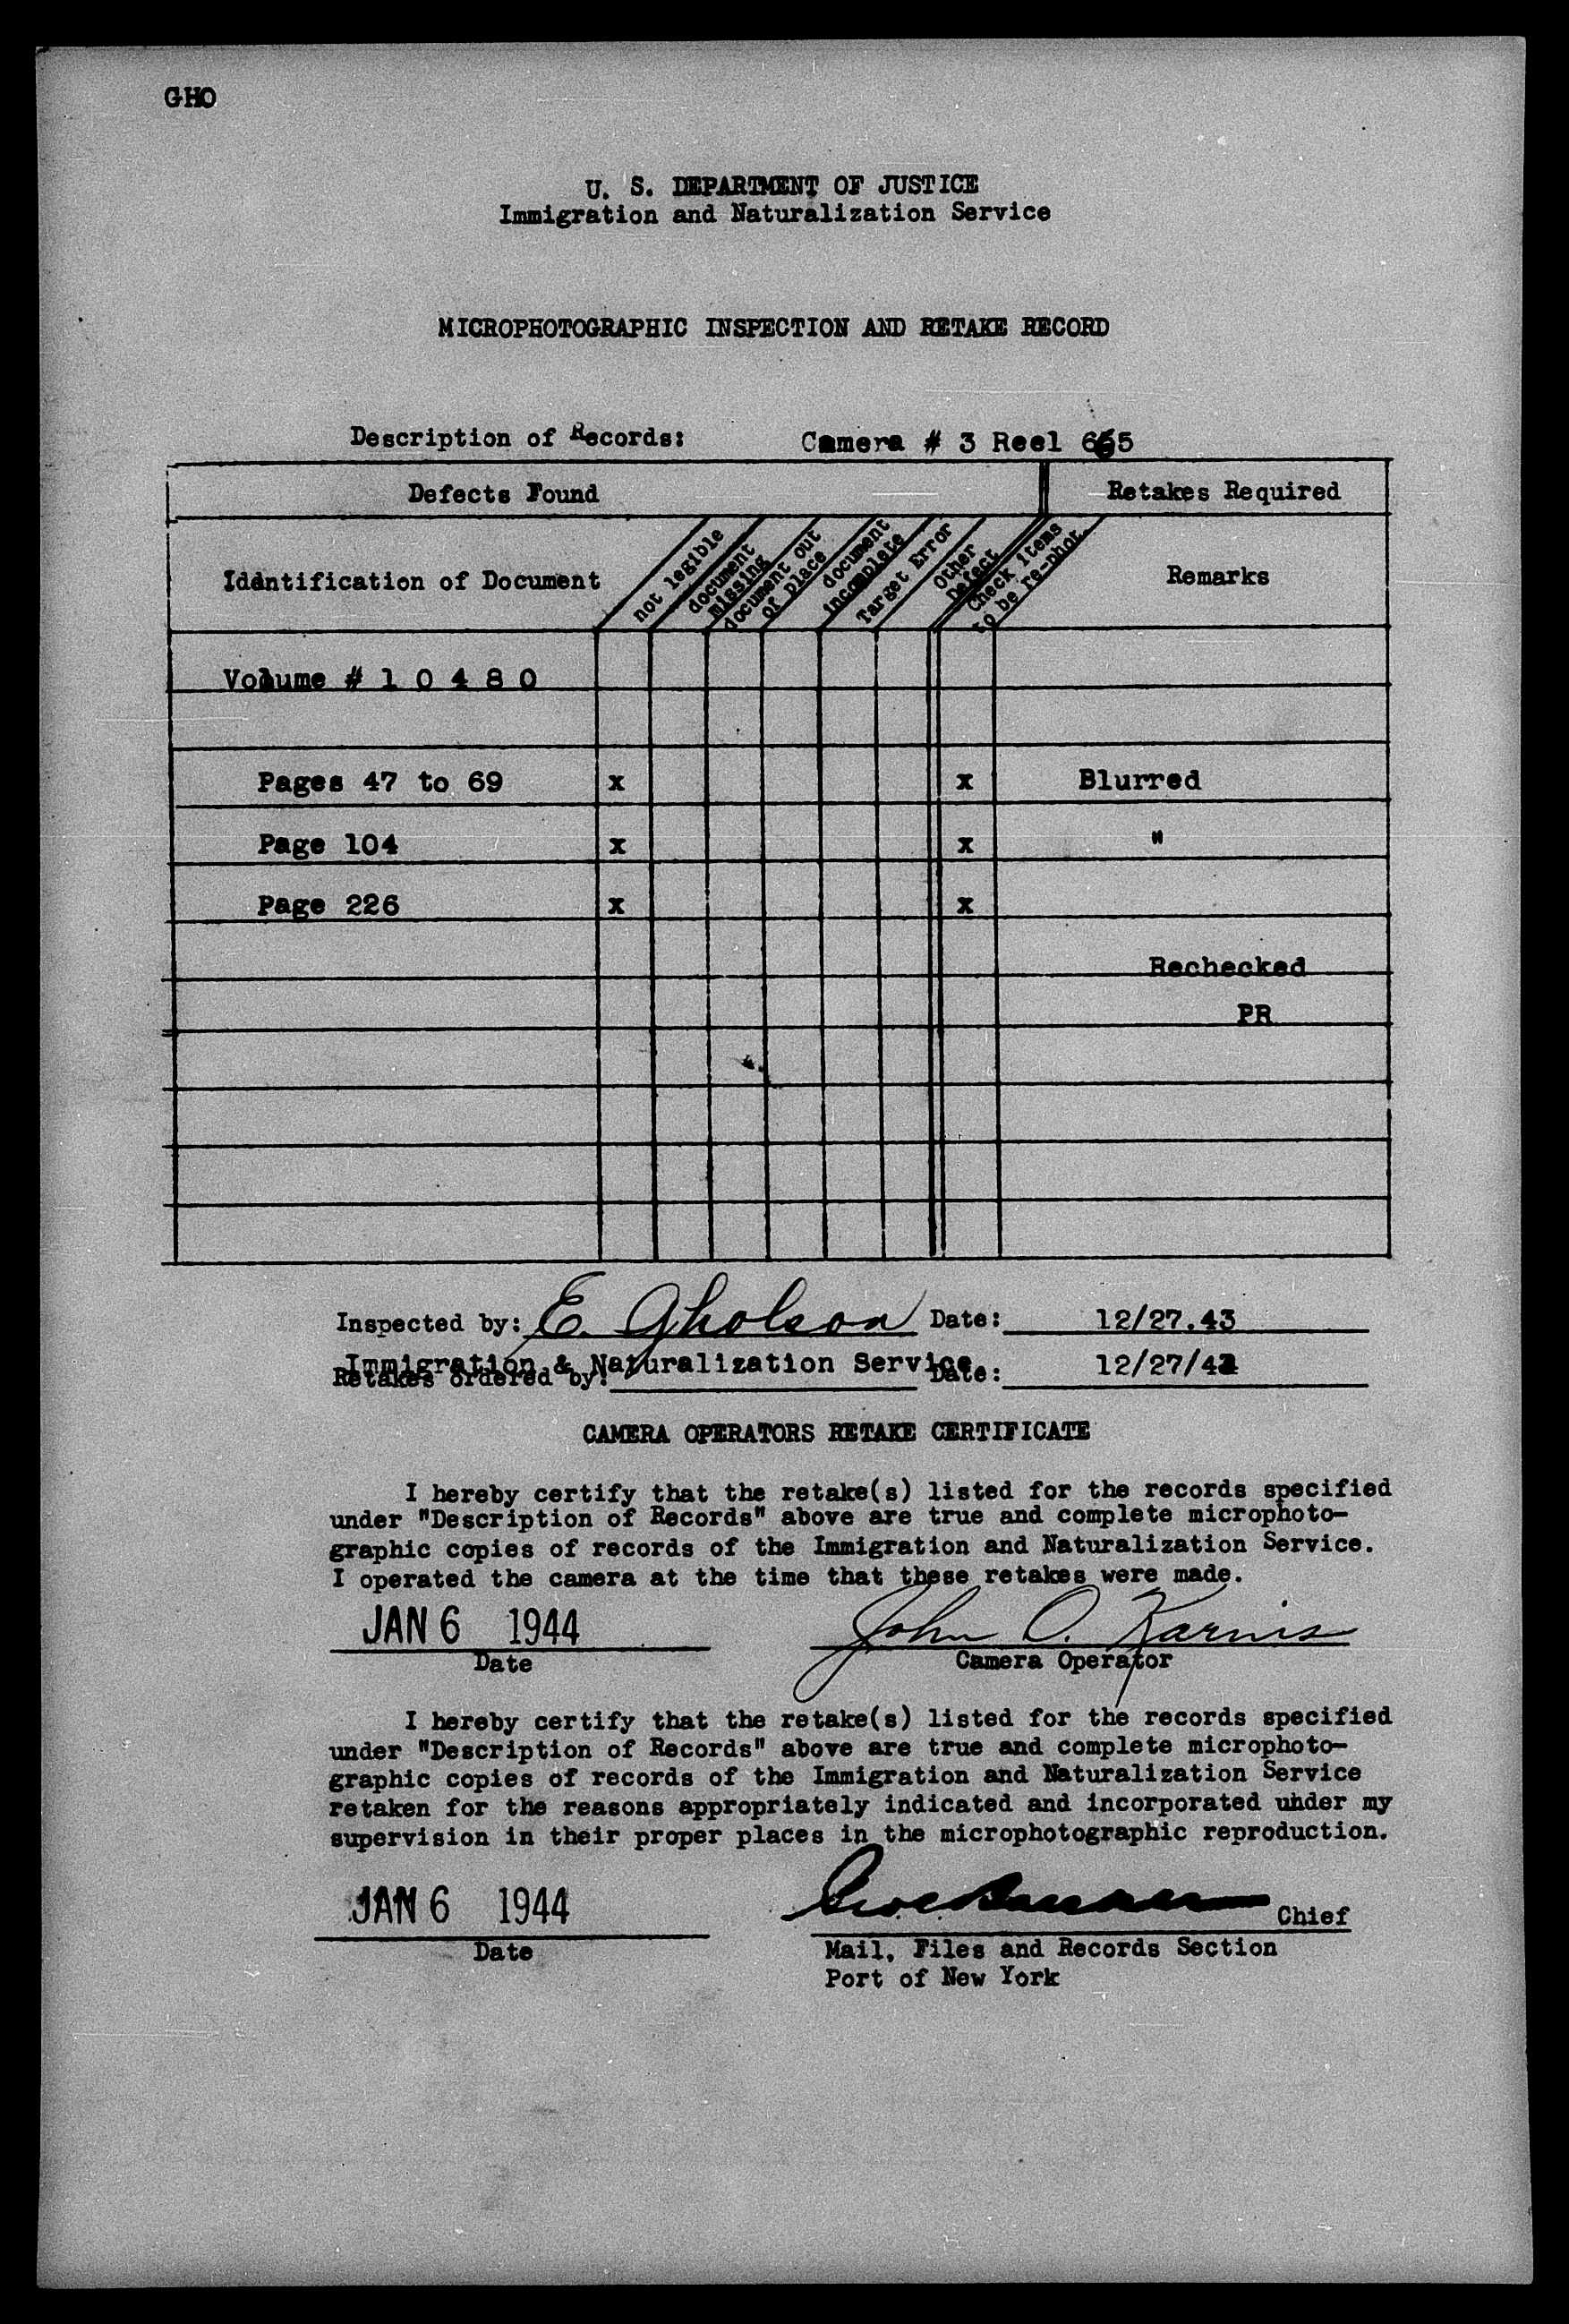 GHO
U. S. DEPARTMENT OF JUSTICE
Immigration and Naturalization Service
MICROPHOTOGRAPHIC INSPECTION AND RETAKE RECORD
Description of Records: Camera # 3 Reel
Defects Found Retakes Required
Identification of Document
not legible
document missing
document out of place
document incomplete
Target Error
Other Defect
Check items to be re-phot.
Remarks
Volume # 1 0 4 8 0
Pages 47 to 69 x x Blurred
Page 104 x x "
Page 226 x x
Rechecked
PR
Inspected by: E. Gholson Date: 12/27.43
Immigration & Naturalization Service
Retakes ordered by: Date: 12/27/43
CAMERA OPERATORS RETAKE CERTIFICATE
I hereby certify that the retake(s) listed for the records specified
under "Description of Records" above are true and complete microphoto-
graphic copies of records of the Immigration and Naturalization Service.
I operated the camera at the time that these retakes were made.
JAN 6 1944 John O. Karnis
Date Camera Operator
I hereby certify that the retake(s) listed for the records specified
under "Description of Records" above are true and complete microphoto-
graphic copies of records of the Immigration and Naturalization Service
retaken for the reasons appropriately indicated and incorporated under my
supervision in their proper places in the microphotographic reproduction.
JAN 6 1944 Chief
Date Mail, Files and Records Section
Port of New York